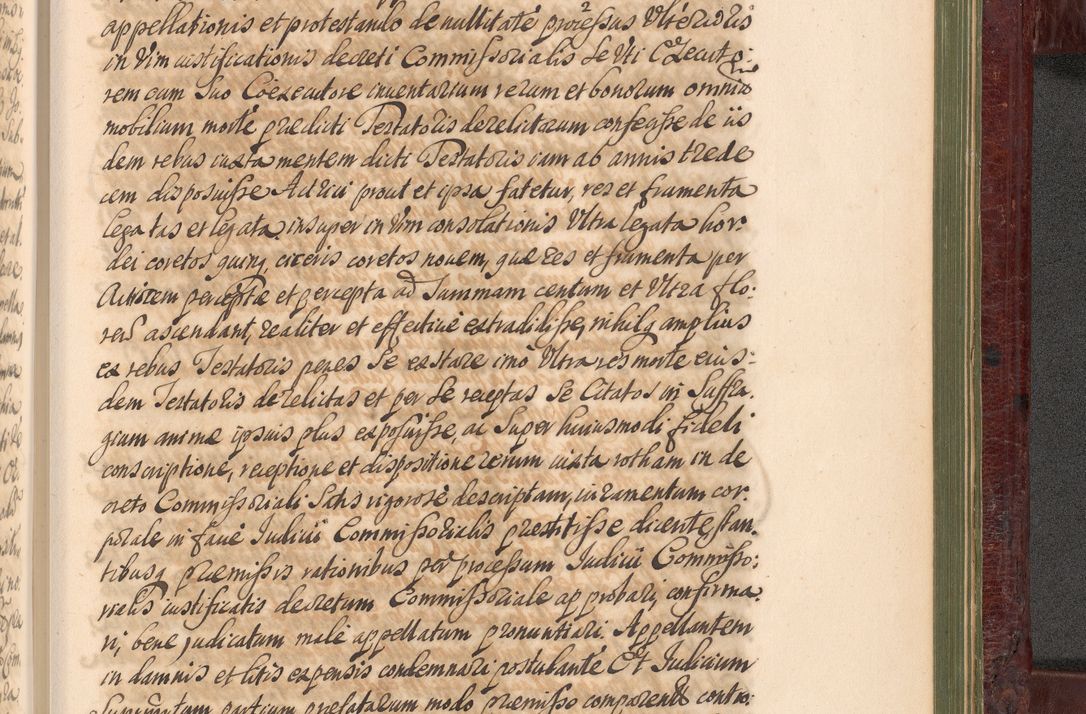 appellationis et protestando de nullitate processus Ulterioris
in Vim iustificationis decreti Commissorialis se Uti Executo:
rem cum suo Coexecutore inventarium rerum et bonorum omnium
mobilium morte praedicti Testatoris derelictarum confecisse de iis
dem rebus iuxta mentem dicti Testatoris iam ab annis trede
cem disposuisse Actrici prout et ipsa fatetur, res et frumenta
lega tas et legata, insuper in Vim consolationis Ultra legata hor:
dei coretos quinq, ciceris coretos novem, quae res et frumenta per
Actricem perceptae et percepta ad Summam centum et Ultra flo:
ren ascendant, realiter et effective extradidisse, nihilq amplius
ex rebus Testatoris penes se extare imo Ultra res morte eius:
dem Testatoris derelictas et per se receptas se Citatos in Suffra:
gium animae ipsius plus exposuisse, ac super huiusmodi fideli
conscriptione, receptione et dispositione rerum iuxta rotham in de
creto Commissoriali satis rigorose descriptam, iuramentum cor:
porale in facie Iudicii Commissorialis praestitisse dicente, stan:
tibusq praemissis rationibus per processum Iudicii Commisso:
rialis iustificatis decretum Commissoriale approbari, confirma:
ri, bene judicatum male appellatum pronuntiari, Appellantem
in damnis et litis expensis condemnari postulante Et Iudicium
partium praefatarum modo praemisso comparen contro: